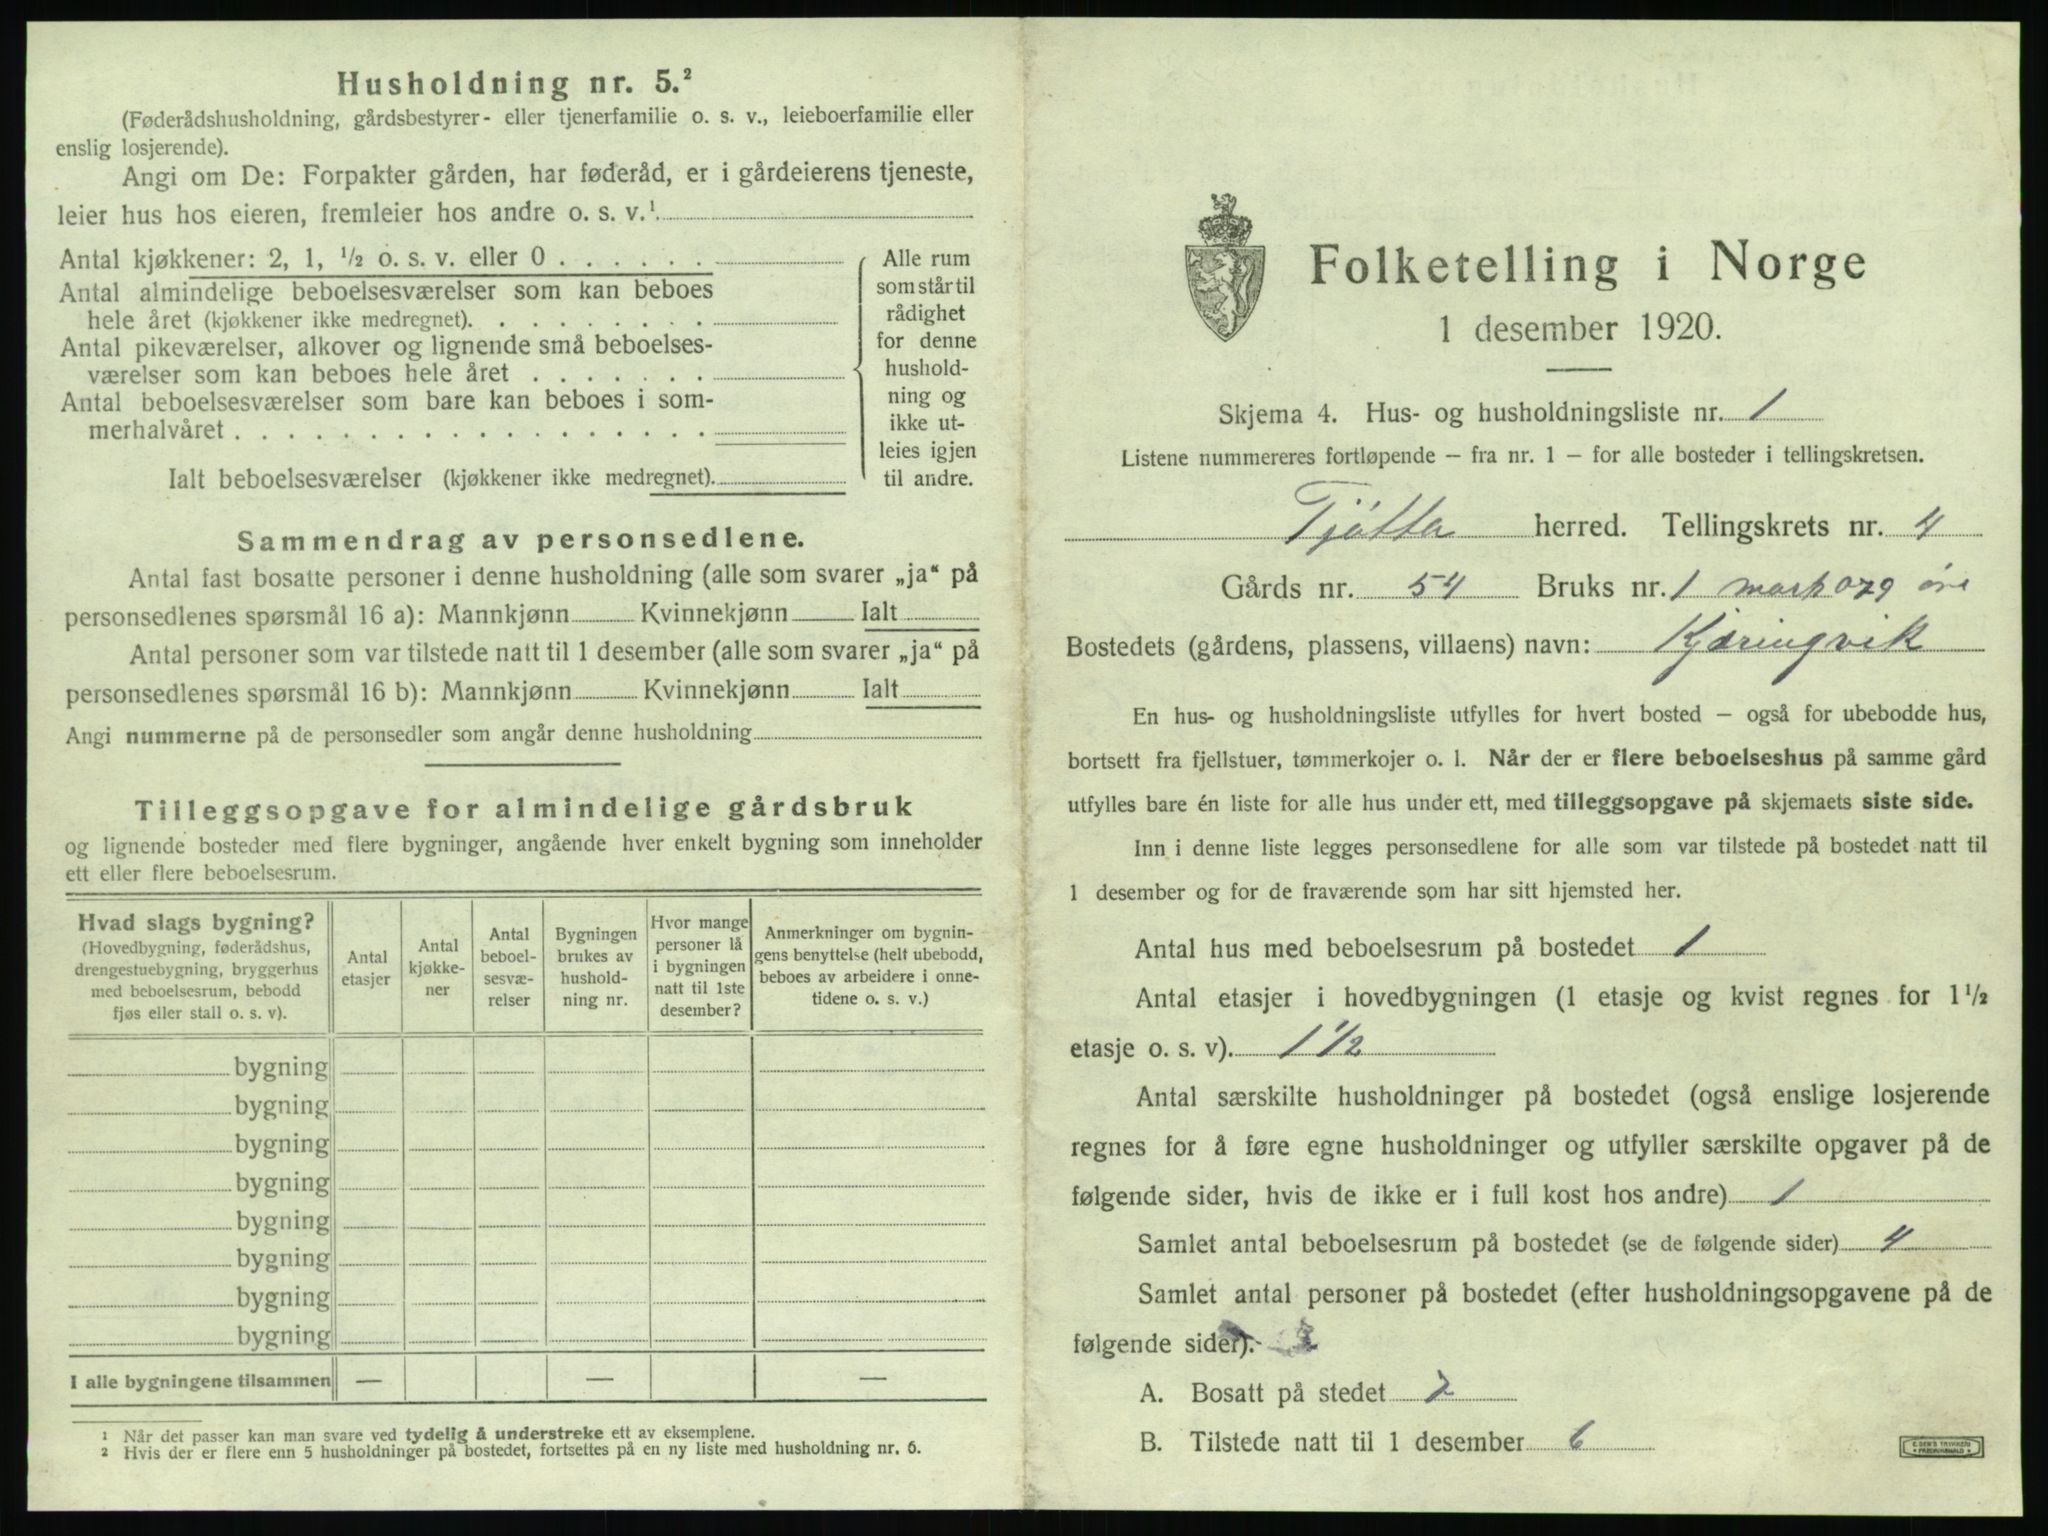 Husholdning nr. 5.²
(Føderådshusholdning, gårdsbestyrer- eller tjenerfamilie o. s. v., leieboerfamilie eller
enslig losjerende).
Angi om De: Forpakter gården, har føderåd, er i gårdeierens tjeneste,
leier hus hos eieren, fremleier hos andre o. s. v.¹
Antal kjøkkener: 2, 1, ½ o. s. v. eller 0 . . . . . .
Antal almindelige beboelsesværelser som kan beboes
hele året (kjøkkener ikke medregnet). . . . . . . . .
Antal pikeværelser, alkover og lignende små beboelses-
værelser som kan beboes hele året . . . . . . .
Antal beboelsesværelser som bare kan beboes i som-
merhalvåret . . . . . . . . . . . . . . . . . .
Ialt beboelsesværelser (kjøkkener ikke medregnet).
Alle rum
som står til
rådighet
for denne
hushold-
ning og
ikke ut-
leies igjen
til andre.
Sammendrag av personsedlene.
Antal fast bosatte personer i denne husholdning (alle som svarer „ja“ på
personsedlenes spørsmål 16 a): Mannkjønn Kvinnekjønn Ialt
Antal personer som var tilstede natt til 1 desember (alle som svarer „ja“ på
personsedlenes spørsmål 16 b): Mannkjønn Kvinnekjønn Ialt
Angi nummerne på de personsedler som angår denne husholdning
Tilleggsopgave for almindelige gårdsbruk
og lignende bosteder med flere bygninger, angående hver enkelt bygning som inneholder
ett eller flere beboelsesrum.
Hvad slags bygning?
(Hovedbygning, føderådshus,
drengestuebygning, bryggerhus
med beboelsesrum, bebodd
fjøs eller stall o. s. v).
Antal
etasjer
Antal
kjøkke-
ner
Antal
beboel-
sesvæ-
relser
Bygningen
brukes av
hushold-
ning nr.
Hvor mange
personer lå
i bygningen
natt til 1ste
desember?
Anmerkninger om bygnin-
gens benyttelse (helt ubebodd,
beboes av arbeidere i onne-
tidene o. s. v.)
bygning
bygning
bygning
bygning
bygning
bygning
bygning
bygning
I alle bygningene tilsammen — — —
¹ Når det passer kan man svare ved tydelig å understreke ett av eksemplene.
² Hvis der er flere enn 5 husholdninger på bostedet, fortsettes på en ny liste med husholdning nr. 6.
Folketelling i Norge
1 desember 1920.
Skjema 4. Hus- og husholdningsliste nr. 1
Listene nummereres fortløpende – fra nr. 1 – for alle bosteder i tellingskretsen.
Tjøtta herred. Tellingskrets nr. 4
Gårds nr. 54 Bruks nr. 1 mark 079 øre
Bostedets (gårdens, plassens, villaens) navn: Kjæringvik
En hus- og husholdningsliste utfylles for hvert bosted – også for ubebodde hus,
bortsett fra fjellstuer, tømmerkojer o. l. Når der er flere beboelseshus på samme gård
utfylles bare én liste for alle hus under ett, med tilleggsopgave på skjemaets siste side.
Inn i denne liste legges personsedlene for alle som var tilstede på bostedet natt til
1 desember og for de fraværende som har sitt hjemsted her.
Antal hus med beboelsesrum på bostedet 1
Antal etasjer i hovedbygningen (1 etasje og kvist regnes for 1½
etasje o. s. v). 1½
Antal særskilte husholdninger på bostedet (også enslige losjerende
regnes for å føre egne husholdninger og utfyller særskilte opgaver på de
følgende sider, hvis de ikke er i full kost hos andre) 1
Samlet antal beboelsesrum på bostedet (se de følgende sider) 4
Samlet antal personer på bostedet (efter husholdningsopgavene på de
følgende sider).
A. Bosatt på stedet 7
B. Tilstede natt til 1 desember 6